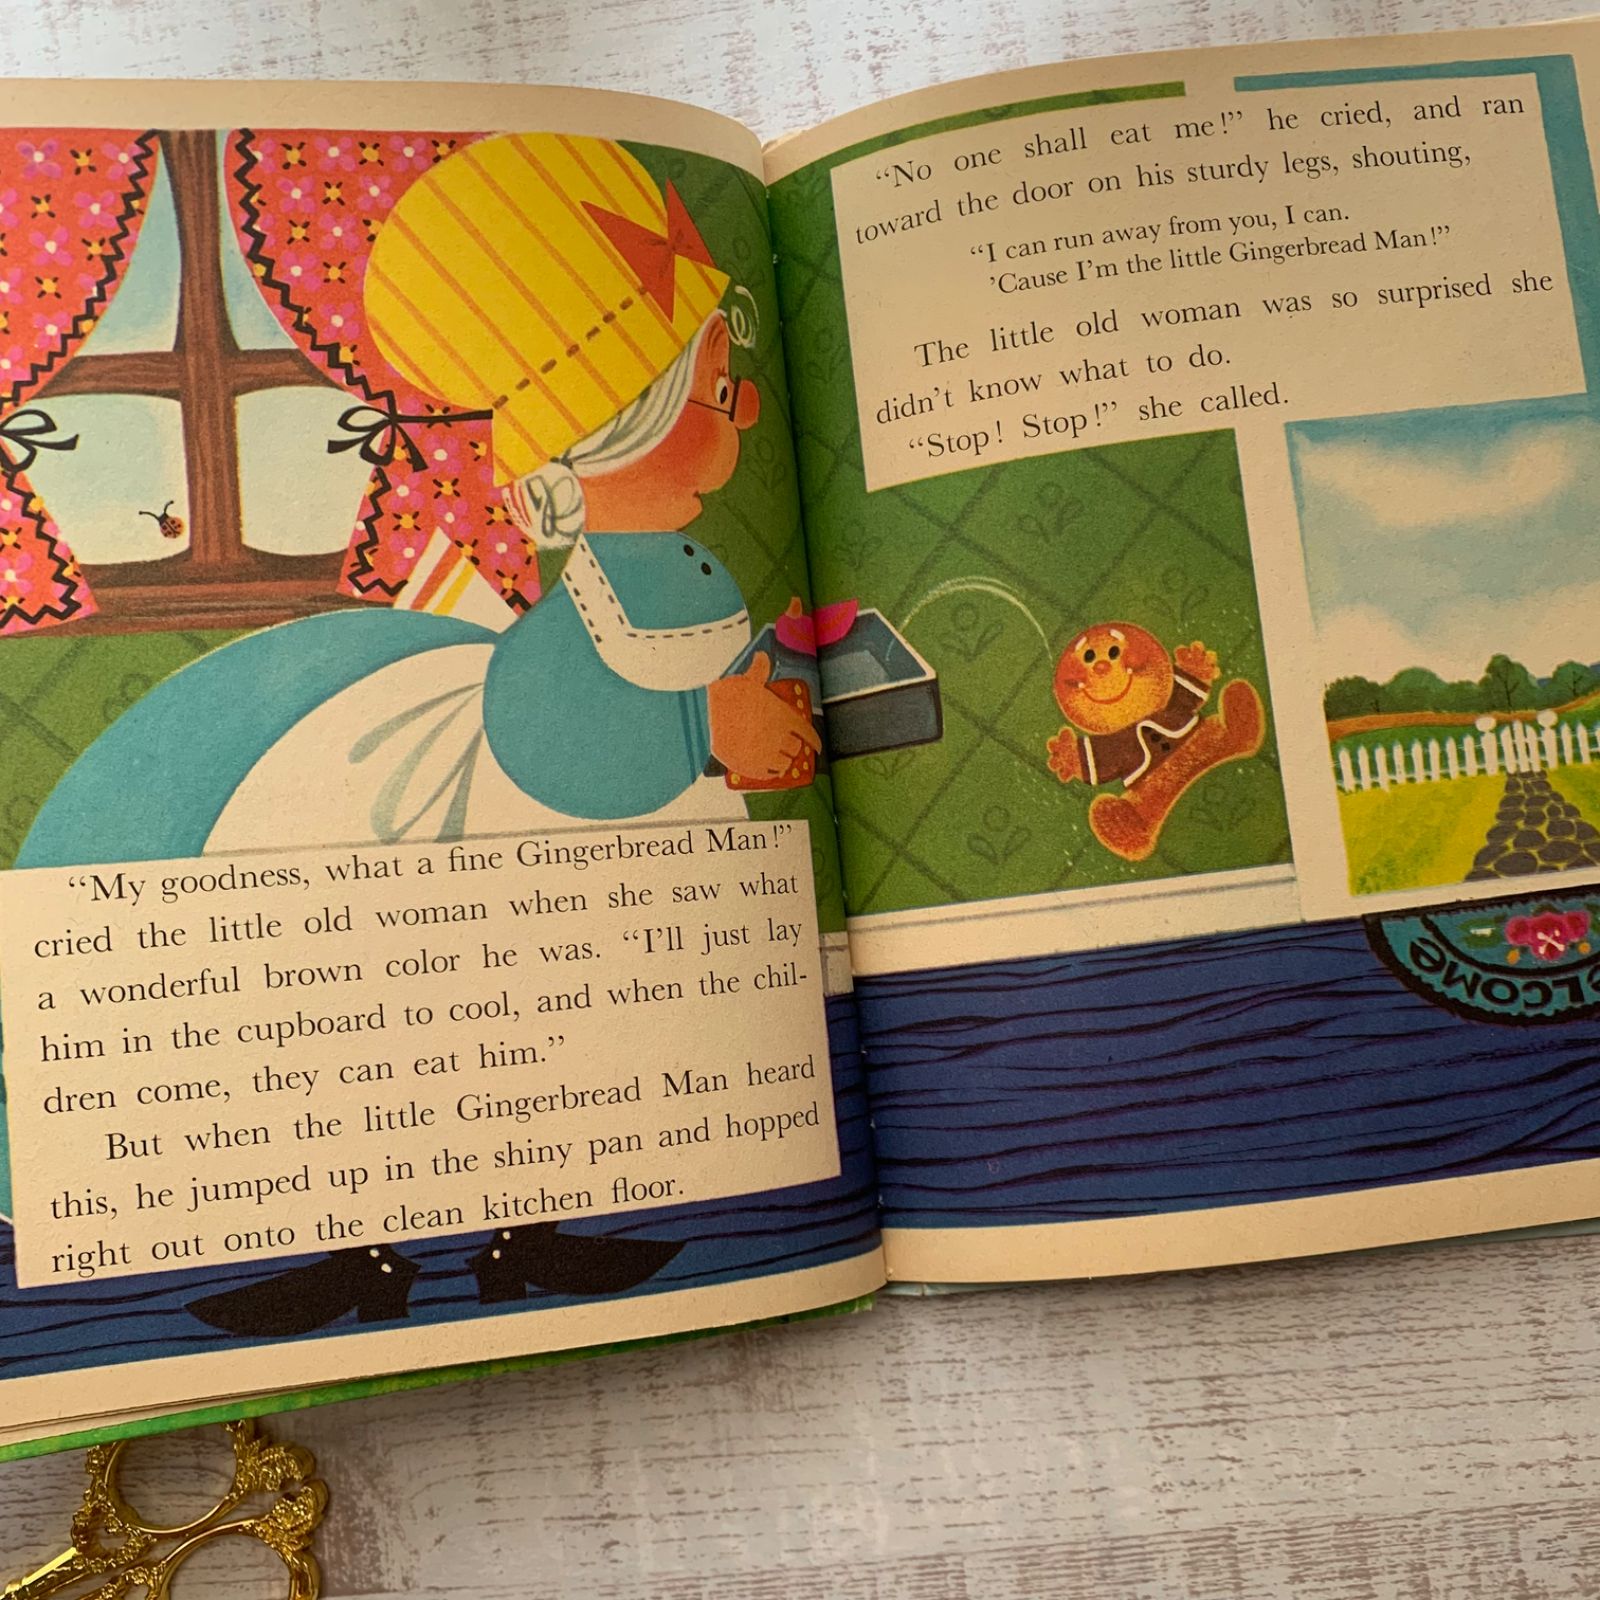 “My goodness, what a fine Gingerbread Man!”
cried the little old woman when she saw what
a wonderful brown color he was. “I’ll just lay
him in the cupboard to cool, and when the chil-
dren come, they can eat him.”
But when the little Gingerbread Man heard
this, he jumped up in the shiny pan and hopped
right out onto the clean kitchen floor.
“No one shall eat me!” he cried, and ran
toward the door on his sturdy legs, shouting,
“I can run away from you, I can.
’Cause I’m the little Gingerbread Man!”
The little old woman was so surprised she
didn’t know what to do.
“Stop! Stop!” she called.
ELCOME